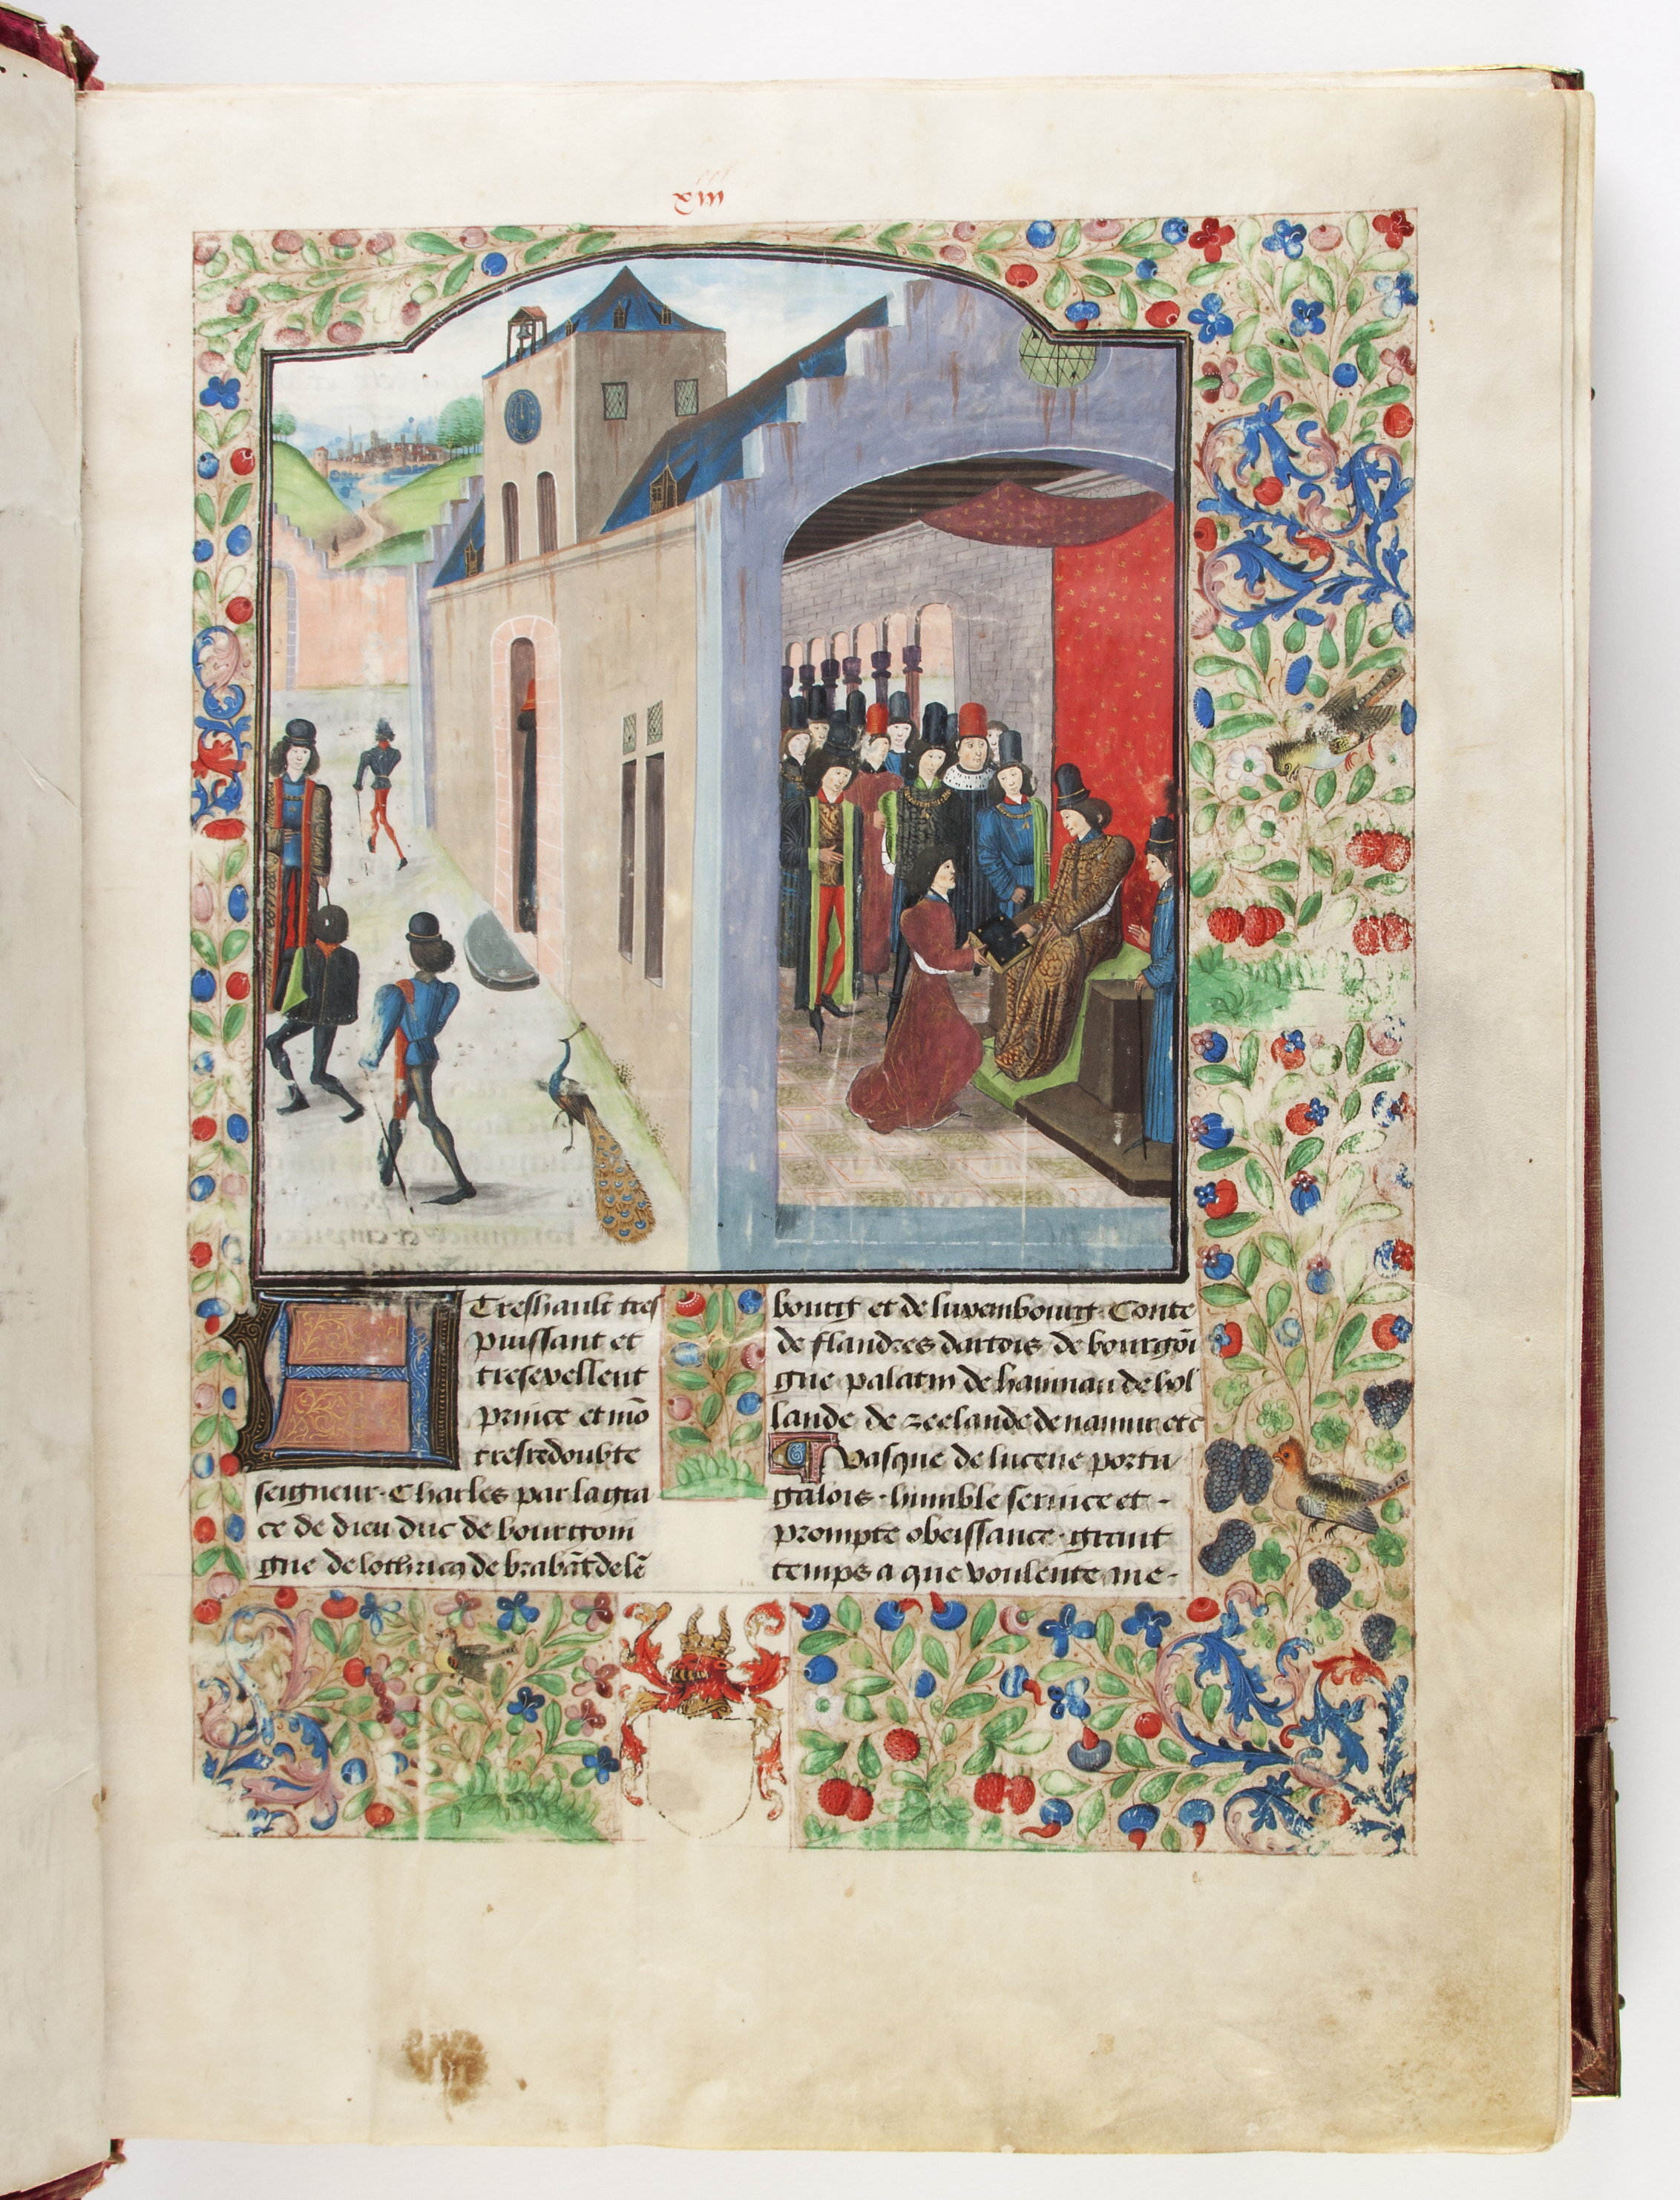 xiii
A Treshault tres
puissant et
tresexellent
prince et mō
tresredoubte
seigneur · Charles par la gra
ce de dieu duc de bourgoin
gne de lothricq de brabāt de lē
bourg et de luxembourg · Conte
de flandres dartois de bourgōi
gne palatin de hainnau de hol
lande de zeelande de namur etc
Vasque de lucene portu
galois · humble seruice et -
prompte obeissance · grant
temps a que voulente me -